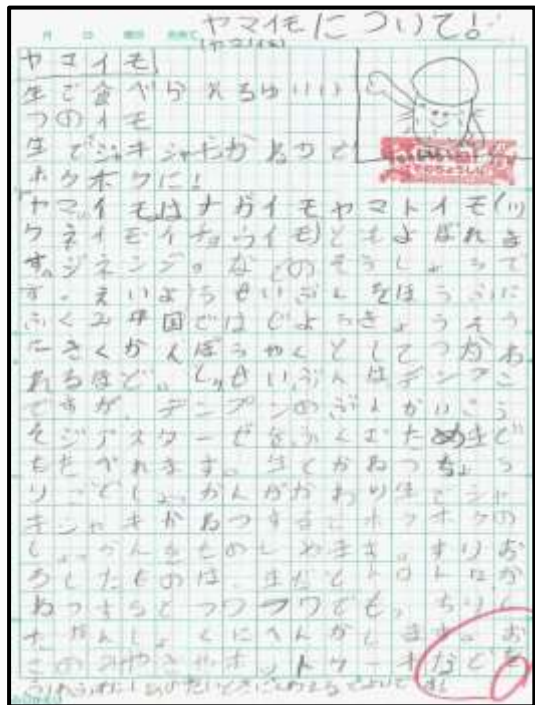 ヤマイモについて!
(ヤマノイモ)
ヤマイモ
生で食べられるゆいいい
つのイモ
生でジャキシャキかねつで
ホクホクに!
ヤマイモはナガイモヤマトイモ(ツ
クネイモイチョウイモ)ともよばれま
す。ジネンジョなどのそうしょうで
す。えいようせいぶんをほうふに
ふくみ中国ではじようきょうそう
たきくかんぽうやくとしてつかわ
れるほど。しゅせいぶんはデンプン
ですが、デンプンのぶんかいこう
そジアスターゼをふくむため生で
もたべれます。生とかねつちょう
りごとしょっかんがかわり生でシャ
キシャキかねつするとホクホクの
しょっかんをたのしめます。すりお
ろしたものは、生だとトロトロか
ねつするとフワフワでも。ちりし
だんしょくにへんかします。お
このみやきやホットケーキなどを